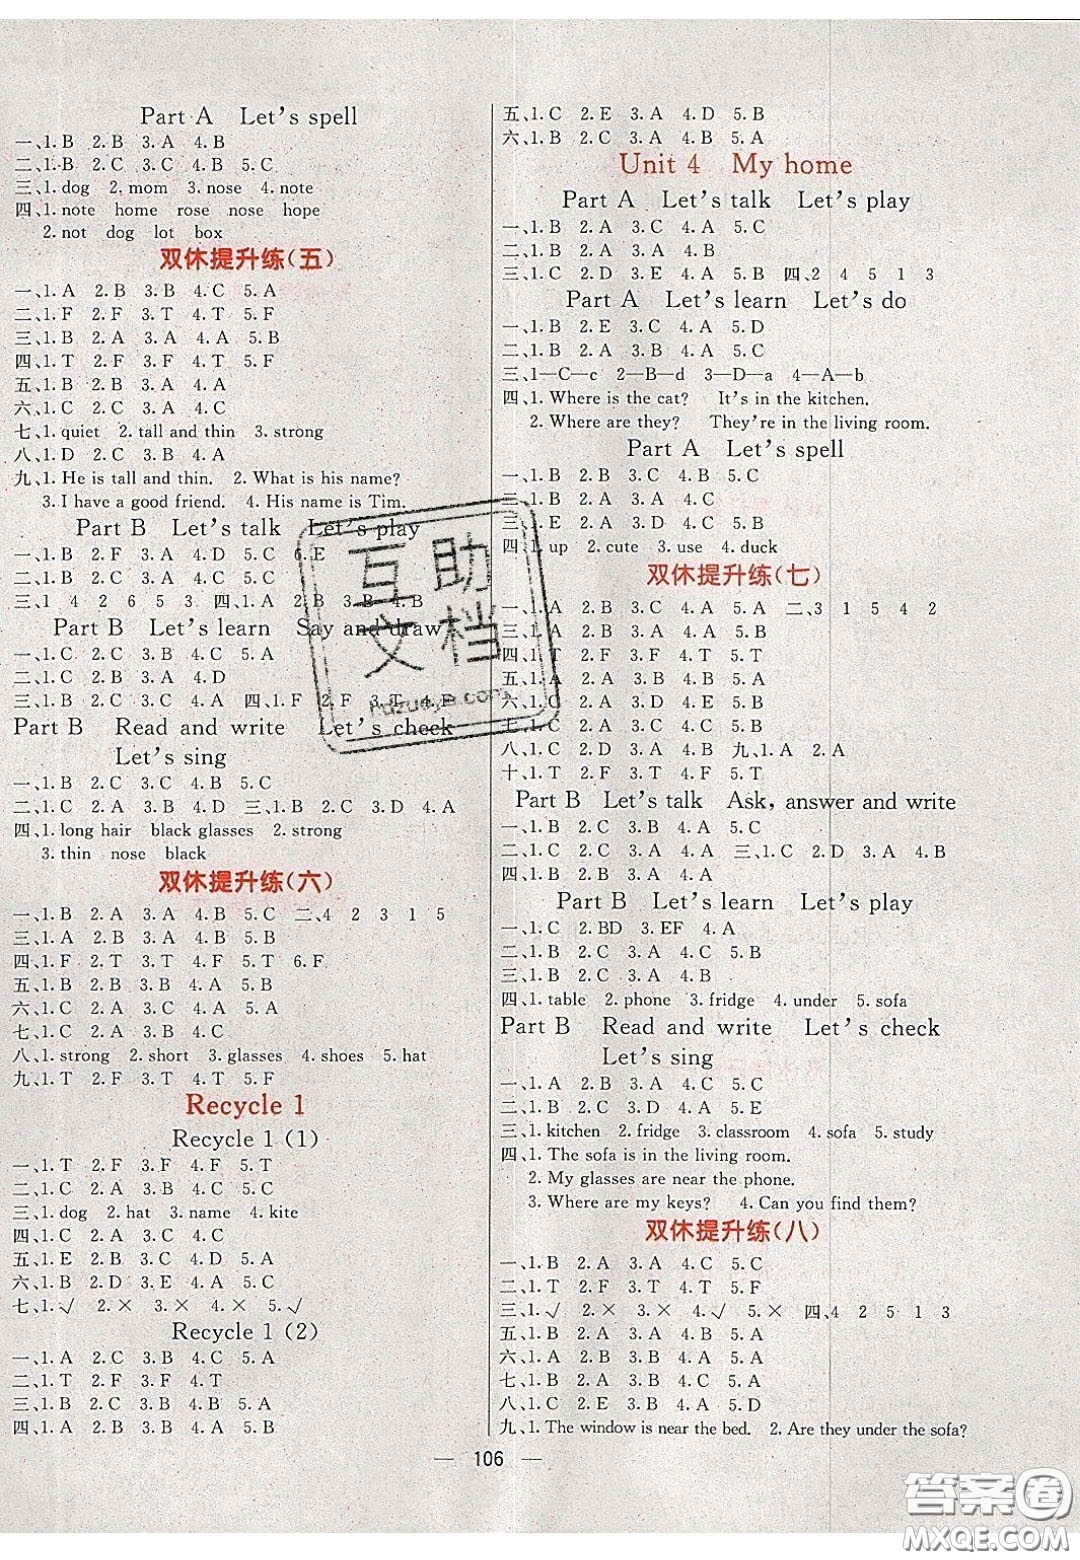 Part A Let's spell
一、1. B 2. B 3. A 4. B
二、1. B 2. C 3. C 4. B 5. C
三、1. dog 2. mom 3. nose 4. note
四、1. note home rose nose hope
2. not dog lot box
双休提升练(五)
一、1. A 2. B 3. B 4. C 5. A
二、1. F 2. F 3. T 4. T 5. F
三、1. B 2. A 3. A 4. A 5. B
四、1. T 2. F 3. F 4. T 5. F
五、1. B 2. B 3. A 4. A
六、1. C 2. C 3. B 4. C
七、1. quiet 2. tall and thin 3. strong
八、1. D 2. C 3. B 4. A
九、1. He is tall and thin. 2. What is his name?
3. I have a good friend. 4. His name is Tim.
Part B Let's talk Let's play
一、1. B 2. F 3. A 4. D 5. C 6. E
二、1. B 2. C 3. A 4. C
三、1 4 2 6 5 3 四、1. A 2. B 3. B 4. B
Part B Let's learn Say and draw
一、1. C 2. C 3. B 4. C 5. A
二、1. C 2. B 3. A 4. D
三、1. B 2. C 3. A 4. C 四、1. F 2. F 3. T 4. F
Part B Read and write Let's check
Let's sing
一、1. B 2. C 3. C 4. B 5. C
二、1. C 2. A 3. B 4. D 三、1. B 2. C 3. D 4. A
四、1. long hair black glasses 2. strong
3. thin nose black
双休提升练(六)
一、1. B 2. A 3. A 4. B 5. C 二、4 2 3 1 5
三、1. A 2. B 3. A 4. B 5. B
四、1. F 2. T 3. T 4. T 5. T 6. F
五、1. B 2. B 3. B 4. A 5. B
六、1. C 2. A 3. C 4. C 5. A
七、1. C 2. A 3. B 4. C
八、1. strong 2. short 3. glasses 4. shoes 5. hat
九、1. T 2. F 3. T 4. T 5. F
Recycle 1
Recycle 1 (1)
一、1. T 2. F 3. F 4. F 5. T
二、1. C 2. A 3. A 4. B 5. C
三、1. dog 2. hat 3. name 4. kite
四、1. C 2. A 3. C 4. C
五、1. E 2. B 3. C 4. D 5. A
六、1. B 2. D 3. E 4. A 5. C
七、1. √ 2. × 3. × 4. × 5. √
Recycle 1 (2)
一、1. A 2. C 3. B 4. C 5. A
二、1. T 2. F 3. F 4. T
三、1. B 2. C 3. B 4. B 5. A
四、1. A 2. B 3. A 4. A 5. B
五、1. C 2. E 3. A 4. D 5. B
六、1. B 2. C 3. A 4. B 5. A
Unit 4 My home
Part A Let's talk Let's play
一、1. B 2. A 3. C 4. A 5. C
二、1. B 2. A 3. A 4. B
三、1. C 2. D 3. E 4. A 5. B 四、2 4 5 1 3
Part A Let's learn Let's do
一、1. B 2. E 3. C 4. A 5. D
二、1. B 2. A 3. B 4. C 5. A
三、1—C—c 2—B—d 3—D—a 4—A—b
四、1. Where is the cat? It's in the kitchen.
2. Where are they? They're in the living room.
Part A Let's spell
一、1. B 2. C 3. C 4. B 5. C
三、1. B 2. A 3. A 4. C
三、1. E 2. A 3. D 4. C 5. B
四、1. up 2. cute 3. use 4. duck
双休提升练(七)
一、1. A 2. B 3. C 4. A 5. A 二、3 1 5 4 2
三、1. A 2. B 3. A 4. A 5. B
四、1. T 2. F 3. F 4. T 5. T
五、1. A 2. B 3. B 4. C 5. A
六、1. C 2. A 3. D 4. E 5. B
七、1. C 2. A 3. C 4. A 5. A
八、1. C 2. D 3. A 4. B 九、1. A 2. A
十、1. T 2. F 3. T 4. F 5. T
Part B Let's talk Ask, answer and write
一、1. B 2. C 3. B 4. A 5. C
二、1. C 2. C 3. A 4. A 三、1. C 2. D 3. A 4. B
四、1. B 2. C 3. A 4. A
Part B Let's learn Let's play
一、1. C 2. BD 3. EF 4. A
二、1. B 2. C 3. A 4. C 5. B
三、1. B 2. C 3. A 4. B
四、1. table 2. phone 3. fridge 4. under 5. sofa
Part B Read and write Let's check
Let's sing
一、1. A 2. B 3. A 4. C 5. C
二、1. C 2. B 3. D 4. A 5. E
三、1. kitchen 2. fridge 3. classroom 4. sofa 5. study
四、1. The sofa is in the living room.
2. My glasses are near the phone.
3. Where are my keys? 4. Can you find them?
双休提升练(八)
一、1. B 2. A 3. A 4. C 5. C
二、1. T 2. F 3. T 4. T 5. F
三、1. √ 2. × 3. × 4. √ 5. × 四、4 2 5 1 3
五、1. B 2. A 3. A 4. B 5. B
六、1. A 2. B 3. A 4. C 5. A
七、1. B 2. A 3. B 4. C 5. A
八、1. C 2. E 3. B 4. A 5. D
九、1. The window is near the bed. 2. Are they under the sofa?
— 106 —
互助
文档
答案圈
MXQE.COM